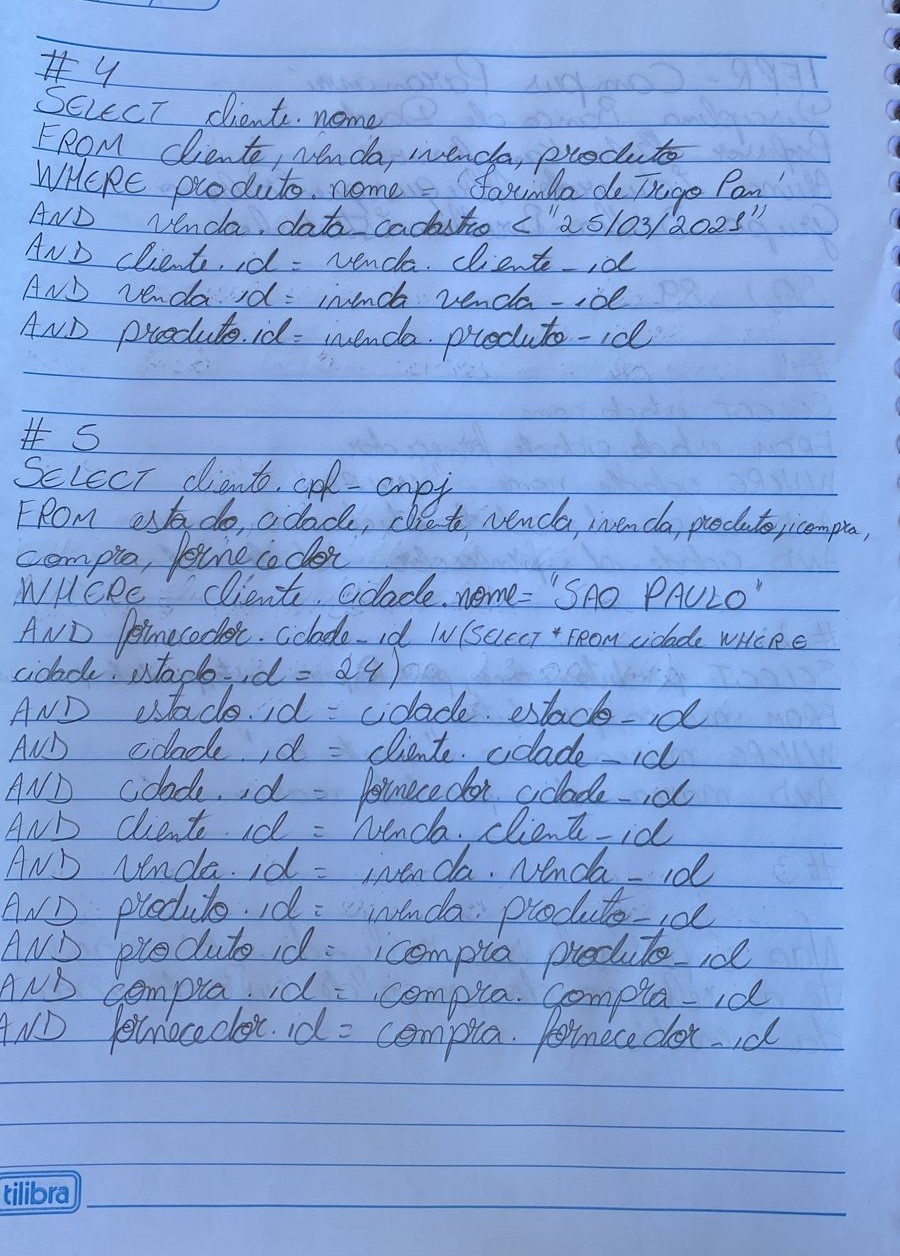 # 4
SELECT cliente.nome
FROM cliente, venda, ivenda, produto
WHERE produto.nome = 'Farinha de Trigo Pan'
AND venda.data_cadastro < "25/03/2021"
AND cliente.id = venda.cliente_id
AND venda.id = ivenda venda_id
AND produto.id = ivenda.produto_id
# 5
SELECT cliente.cpf_cnpj
FROM estado, cidade, cliente, venda, ivenda, produto, icompra,
compra, fornecedor
WHERE cliente.cidade.nome = "SAO PAULO"
AND fornecedor.cidade_id IN (SELECT * FROM cidade WHERE
cidade.estado_id = 24)
AND estado.id = cidade.estado_id
AND cidade.id = cliente.cidade_id
AND cidade.id = fornecedor.cidade_id
AND cliente.id = venda.cliente_id
AND venda.id = ivenda.venda_id
AND produto.id = ivenda.produto_id
AND produto id = icompra produto_id
AND compra.id = icompra.compra_id
AND fornecedor.id = compra.fornecedor_id
tilibra